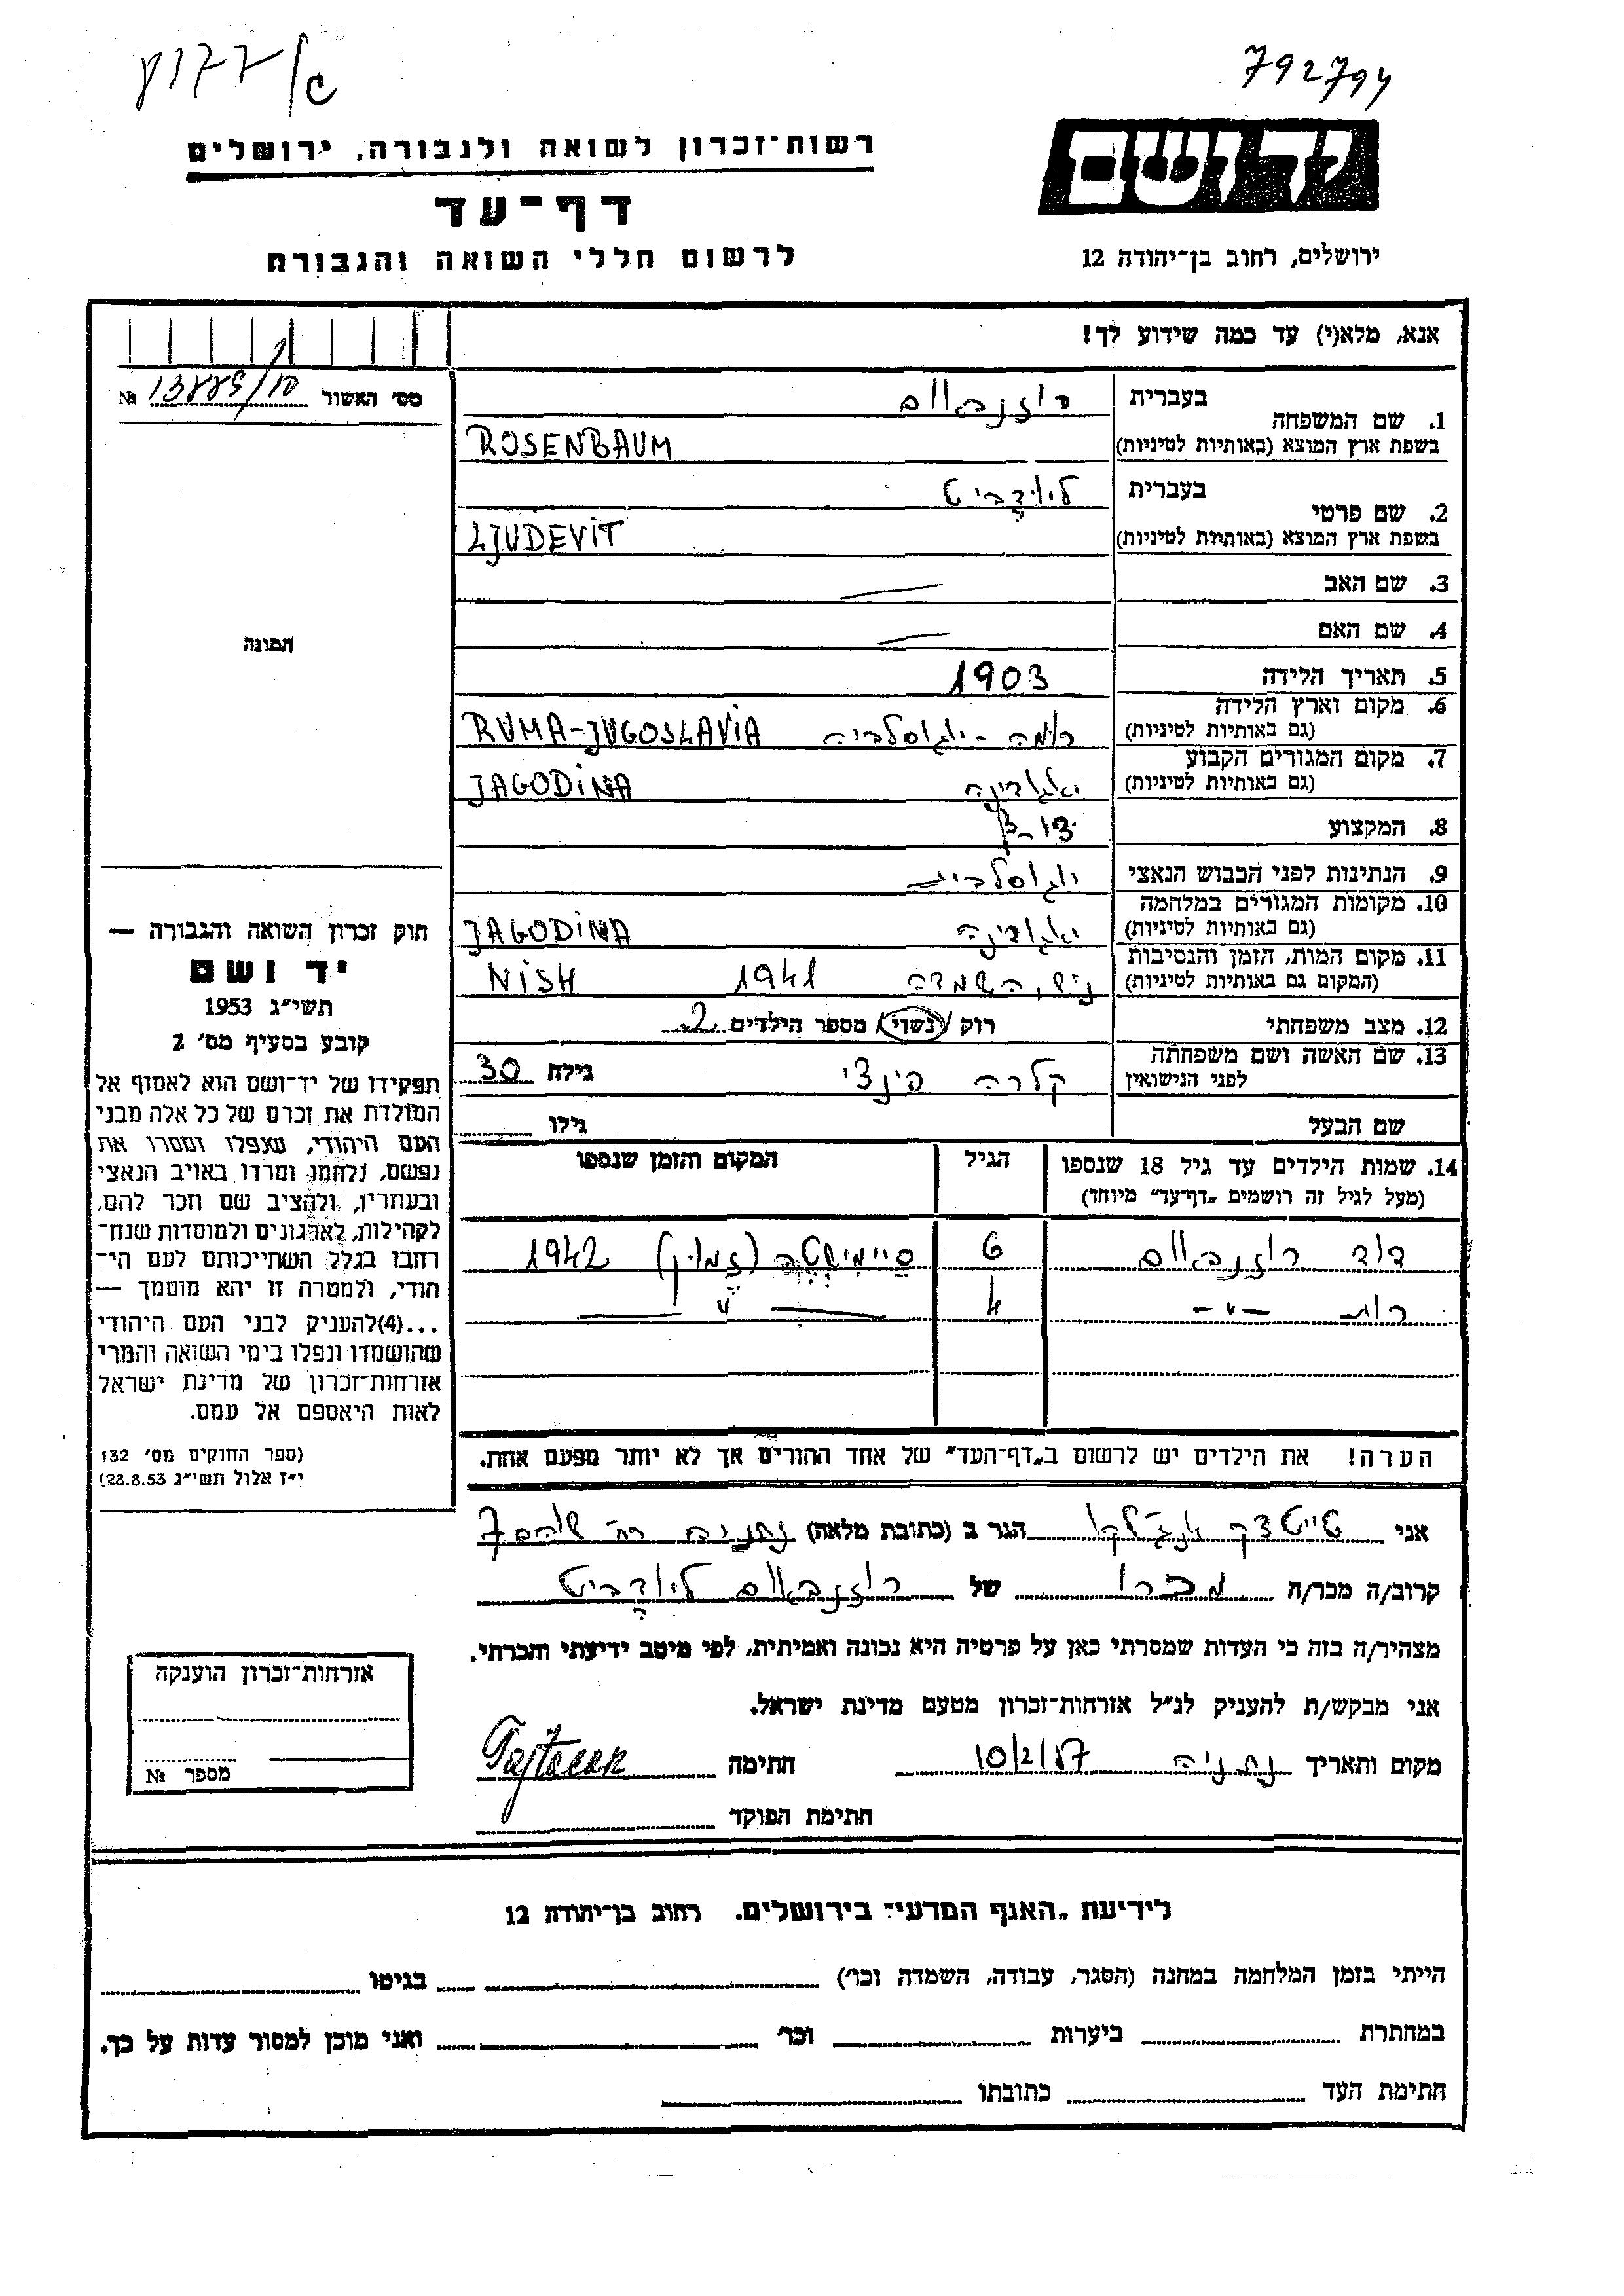 792794
יד ושם
רשות־זכרון לשואה ולגבורה, ירושלים
דף־עד
לרשום חללי השואה והגבורה
ירושלים, רחוב בן־יהודה 12
אנא, מלא(י) עד כמה שידוע לך!
מס׳ האשור №
1. שם המשפחה בעברית רוזנבאום
בשפת ארץ המוצא (באותיות לטיניות) ROSENBAUM
2. שם פרטי בעברית ליודביט
בשפת ארץ המוצא (באותיות לטיניות) LJUDEVIT
3. שם האב —
4. שם האם —
5. תאריך הלידה 1903
6. מקום וארץ הלידה (גם באותיות לטיניות) רומה - יוגוסלביה RUMA-JUGOSLAVIA
7. מקום המגורים הקבוע (גם באותיות לטיניות) יאגודינה JAGODINA
8. המקצוע
9. הנתינות לפני הכבוש הנאצי יוגוסלבית
10. מקומות המגורים במלחמה (גם באותיות לטיניות) יאגודינה JAGODINA
11. מקום המות, הזמן והנסיבות (המקום גם באותיות לטיניות) ניש, השמדה 1941 NISH
12. מצב משפחתי רוק / נשוי / מספר הילדים 2
13. שם האשה ושם משפחתה לפני הנישואין קלרה פינצי גילה 30
שם הבעל גילו
14. שמות הילדים עד גיל 18 שנספו (מעל לגיל זה רושמים „דף־עד״ מיוחד) הגיל המקום והזמן שנספו
דוד רוזנבאום 6 סיימישטה (זמון) 1942
רות —״— 4 — ״ —
הערה! את הילדים יש לרשום ב„דף־העד״ של אחד ההורים אך לא יותר מפעם אחת.
תמונה
חוק זכרון השואה והגבורה —
יד ושם
תשי״ג 1953
קובע בסעיף מס׳ 2
תפקידו של יד־ושם הוא לאסוף אל
המולדת את זכרם של כל אלה מבני
העם היהודי, שנפלו ומסרו את
נפשם, נלחמו ומרדו באויב הנאצי
ובעוזריו, ולהציב שם וזכר להם,
לקהילות, לארגונים ולמוסדות שנח־
רבו בגלל השתייכותם לעם הי־
הודי, ולמטרה זו יהא מוסמך —
...(4)להעניק לבני העם היהודי
שהושמדו ונפלו בימי השואה והמרי
אזרחות־זכרון של מדינת ישראל
לאות היאספם אל עמם.
(ספר החוקים מס׳ 132
י״ז אלול תשי״ג 28.8.53)
אני הגר ב (כתובת מלאה) נתניה רח׳ שוהם 7
קרוב/ה מכר/ה מכרו של רוזנבאום ליודביט
מצהיר/ה בזה כי העדות שמסרתי כאן על פרטיה היא נכונה ואמיתית, לפי מיטב ידיעתי והכרתי.
אני מבקש/ת להעניק לנ״ל אזרחות־זכרון מטעם מדינת ישראל.
מקום ותאריך נתניה 10/2/87 חתימה
חתימת הפוקד
אזרחות־זכרון הוענקה
מספר №
לידיעת „האגף המדעי״ בירושלים. רחוב בן־יהודה 12
הייתי בזמן המלחמה במחנה (הסגר, עבודה, השמדה וכו׳) בגיטו
במחתרת ביערות וכו׳ ואני מוכן למסור עדות על כך.
חתימת העד כתובתו